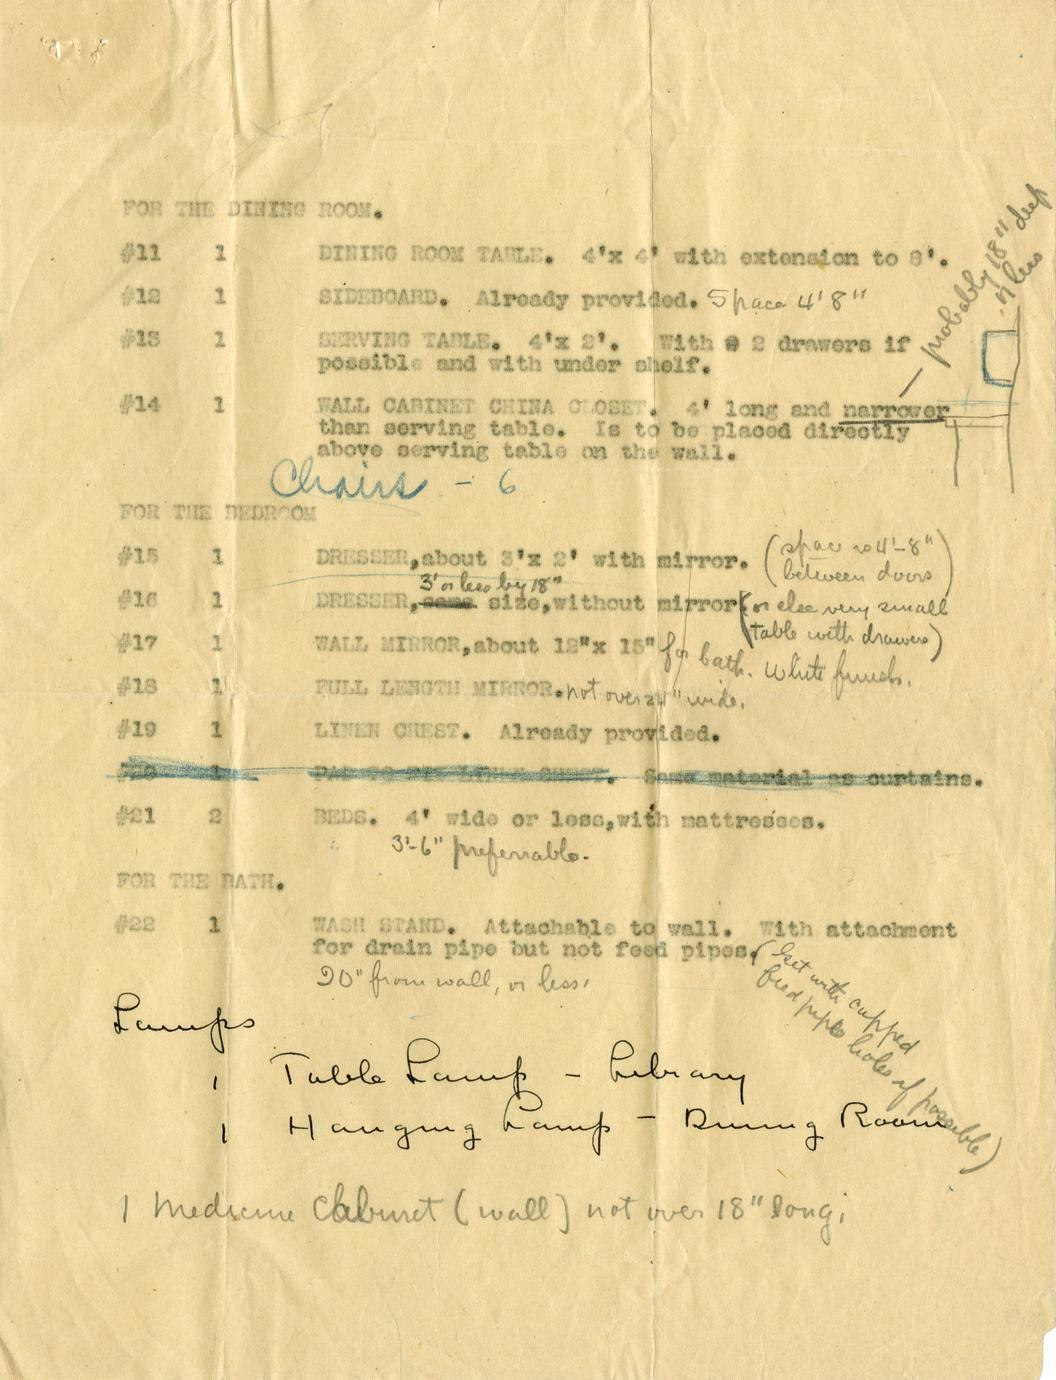 FOR THE DINING ROOM.
#11 1 DINING ROOM TABLE. 4'x 4' with extension to 8'.
#12 1 SIDEBOARD. Already provided. Space 4'8"
#13 1 SERVING TABLE. 4'x 2'. With 2 drawers if
possible and with under shelf.
probably 18" deep
or less
#14 1 WALL CABINET CHINA CLOSET. 4' long and narrower
than serving table. Is to be placed directly
above serving table on the wall.
Chairs - 6
FOR THE BEDROOM
#15 1 DRESSER, about 3'x 2' with mirror.
(space is 4'-8"
between doors)
3' or less by 18"
#16 1 DRESSER, same size, without mirror (or else very small
table with drawers)
#17 1 WALL MIRROR, about 12"x 15" for bath. White finish.
#18 1 FULL LENGTH MIRROR. not over 24" wide.
#19 1 LINEN CHEST. Already provided.
#20 1 LINEN CHEST. Same material as curtains.
#21 2 BEDS. 4' wide or less, with mattresses.
3'-6" preferrable.
FOR THE BATH.
#22 1 WASH STAND. Attachable to wall. With attachment
for drain pipe but not feed pipes.
(Get with capped
feed pipe holes if possible)
20" from wall, or less.
Lamps
1 Table Lamp - Library
1 Hanging Lamp - Dining Room
1 Medicine Cabinet (wall) not over 18" long.